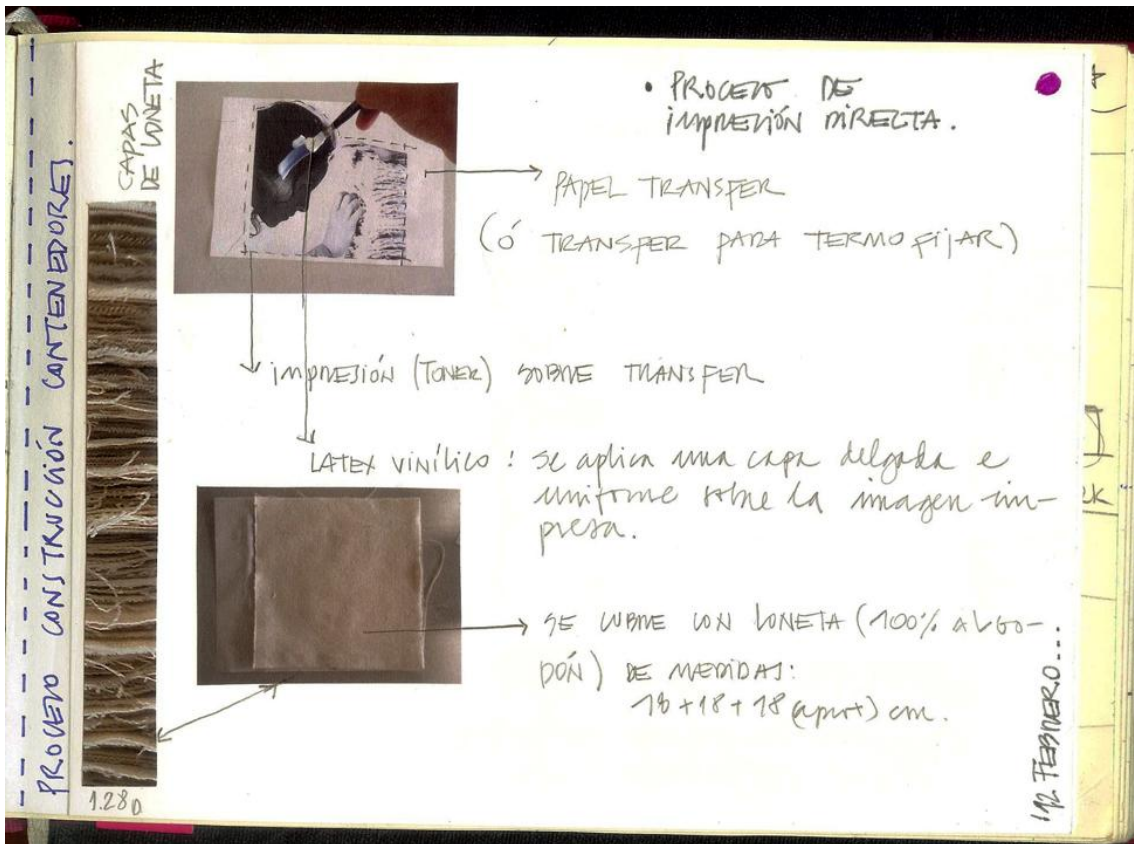 PROCESO CONSTRUCCIÓN CONTENEDORES.
CAPAS
DE LONETA
1.28a
• PROCESO DE
IMPRESIÓN DIRECTA.
PAPEL TRANSFER
(Ó TRANSFER PARA TERMOFIJAR)
IMPRESIÓN (TONER) SOBRE TRANSFER
LATEX VINÍLICO: se aplica una capa delgada e
uniforme sobre la imagen im-
presa.
SE CUBRE CON LONETA (100% ALGO-
DÓN) DE MEDIDAS:
18+18+18 (aprox) cm.
FEBRERO...